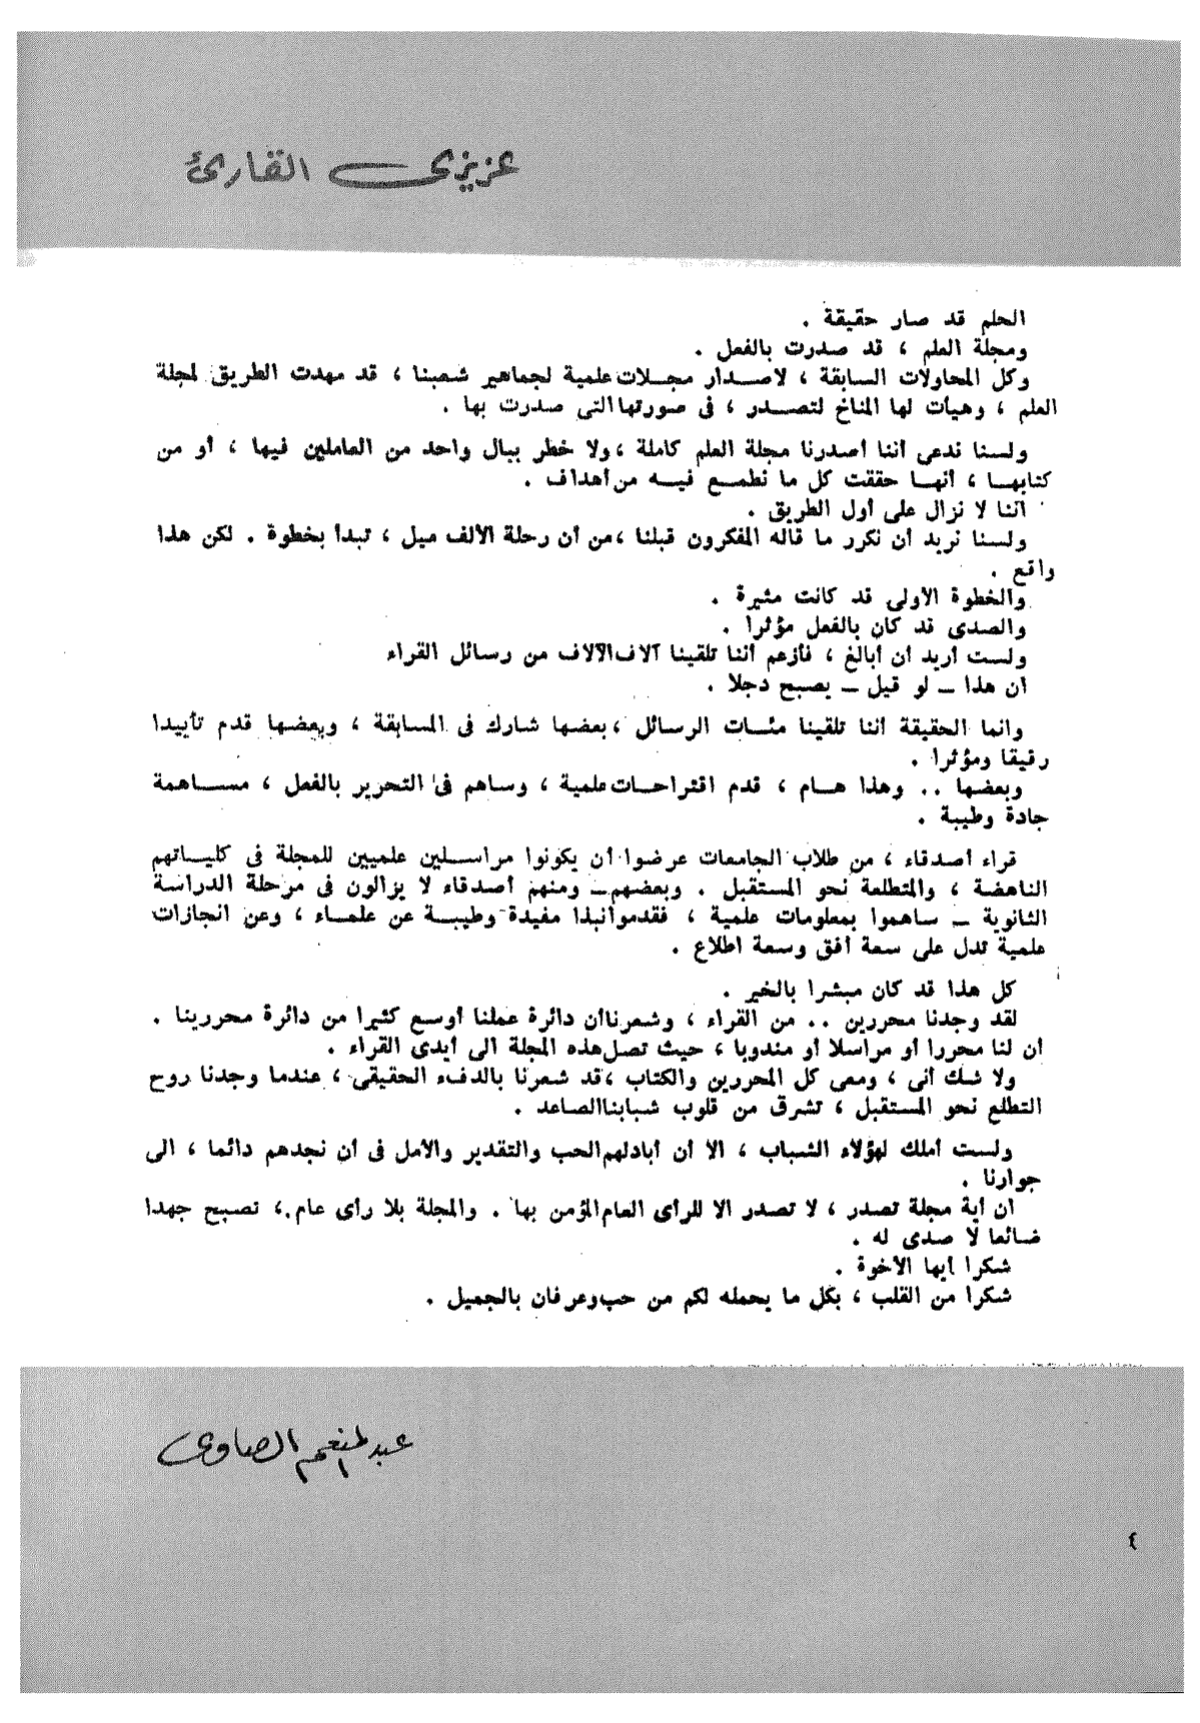 عزيزى القارئ
الحلم قد صار حقيقة .
ومجلة العلم ، قد صدرت بالفعل .
وكل المحاولات السابقة ، لاصدار مجلات علمية لجماهير شعبنا ، قد مهدت الطريق لمجلة
العلم ، وهيأت لها المناخ لتصدر ، فى صورتها التى صدرت بها .
ولسنا ندعى أننا أصدرنا مجلة العلم كاملة ، ولا خطر ببال واحد من العاملين فيها ، أو من
كتابها ، أنها حققت كل ما نطمع فيه من أهداف .
اننا لا نزال على أول الطريق .
ولسنا نريد أن نكرر ما قاله المفكرون قبلنا ، من أن رحلة الألف ميل ، تبدأ بخطوة . لكن هذا
واقع .
والخطوة الأولى قد كانت مثيرة .
والصدى قد كان بالفعل مؤثرا .
ولست أريد أن أبالغ ، فأزعم أننا تلقينا آلاف الآلاف من رسائل القراء
ان هذا ـ لو قيل ـ يصبح دجلا .
وانما الحقيقة أننا تلقينا مئات الرسائل ، بعضها شارك فى المسابقة ، وبعضها قدم تأييدا
رقيقا ومؤثرا .
وبعضها .. وهذا هام ، قدم اقتراحات علمية ، وساهم فى التحرير بالفعل ، مساهمة
جادة وطيبة .
قراء أصدقاء ، من طلاب الجامعات عرضوا أن يكونوا مراسلين علميين للمجلة فى كلياتهم
الناهضة ، والمتطلعة نحو المستقبل . وبعضهم ـ ومنهم أصدقاء لا يزالون فى مرحلة الدراسة
الثانوية ـ ساهموا بمعلومات علمية ، فقدموا نبذا مفيدة وطيبة عن علماء ، وعن انجازات
علمية تدل على سعة أفق وسعة اطلاع .
كل هذا قد كان مبشرا بالخير .
لقد وجدنا محررين .. من القراء ، وشعرنا أن دائرة عملنا أوسع كثيرا من دائرة محررينا .
أن لنا محررا أو مراسلا أو مندوبا ، حيث تصل هذه المجلة الى أيدى القراء .
ولا شك أنى ، ومعى كل المحررين والكتاب ، قد شعرنا بالدفء الحقيقى ، عندما وجدنا روح
التطلع نحو المستقبل ، تشرق من قلوب شبابنا الصاعد .
ولست أملك لهؤلاء الشباب ، الا أن أبادلهم الحب والتقدير والأمل فى أن نجدهم دائما ، الى
جوارنا .
ان أية مجلة تصدر ، لا تصدر الا للرأى العام المؤمن بها . والمجلة بلا رأى عام ، تصبح جهدا
ضائعا لا صدى له .
شكرا أيها الأخوة .
شكرا من القلب ، بكل ما يحمله لكم من حب وعرفان بالجميل .
عبد المنعم الصاوى
٤